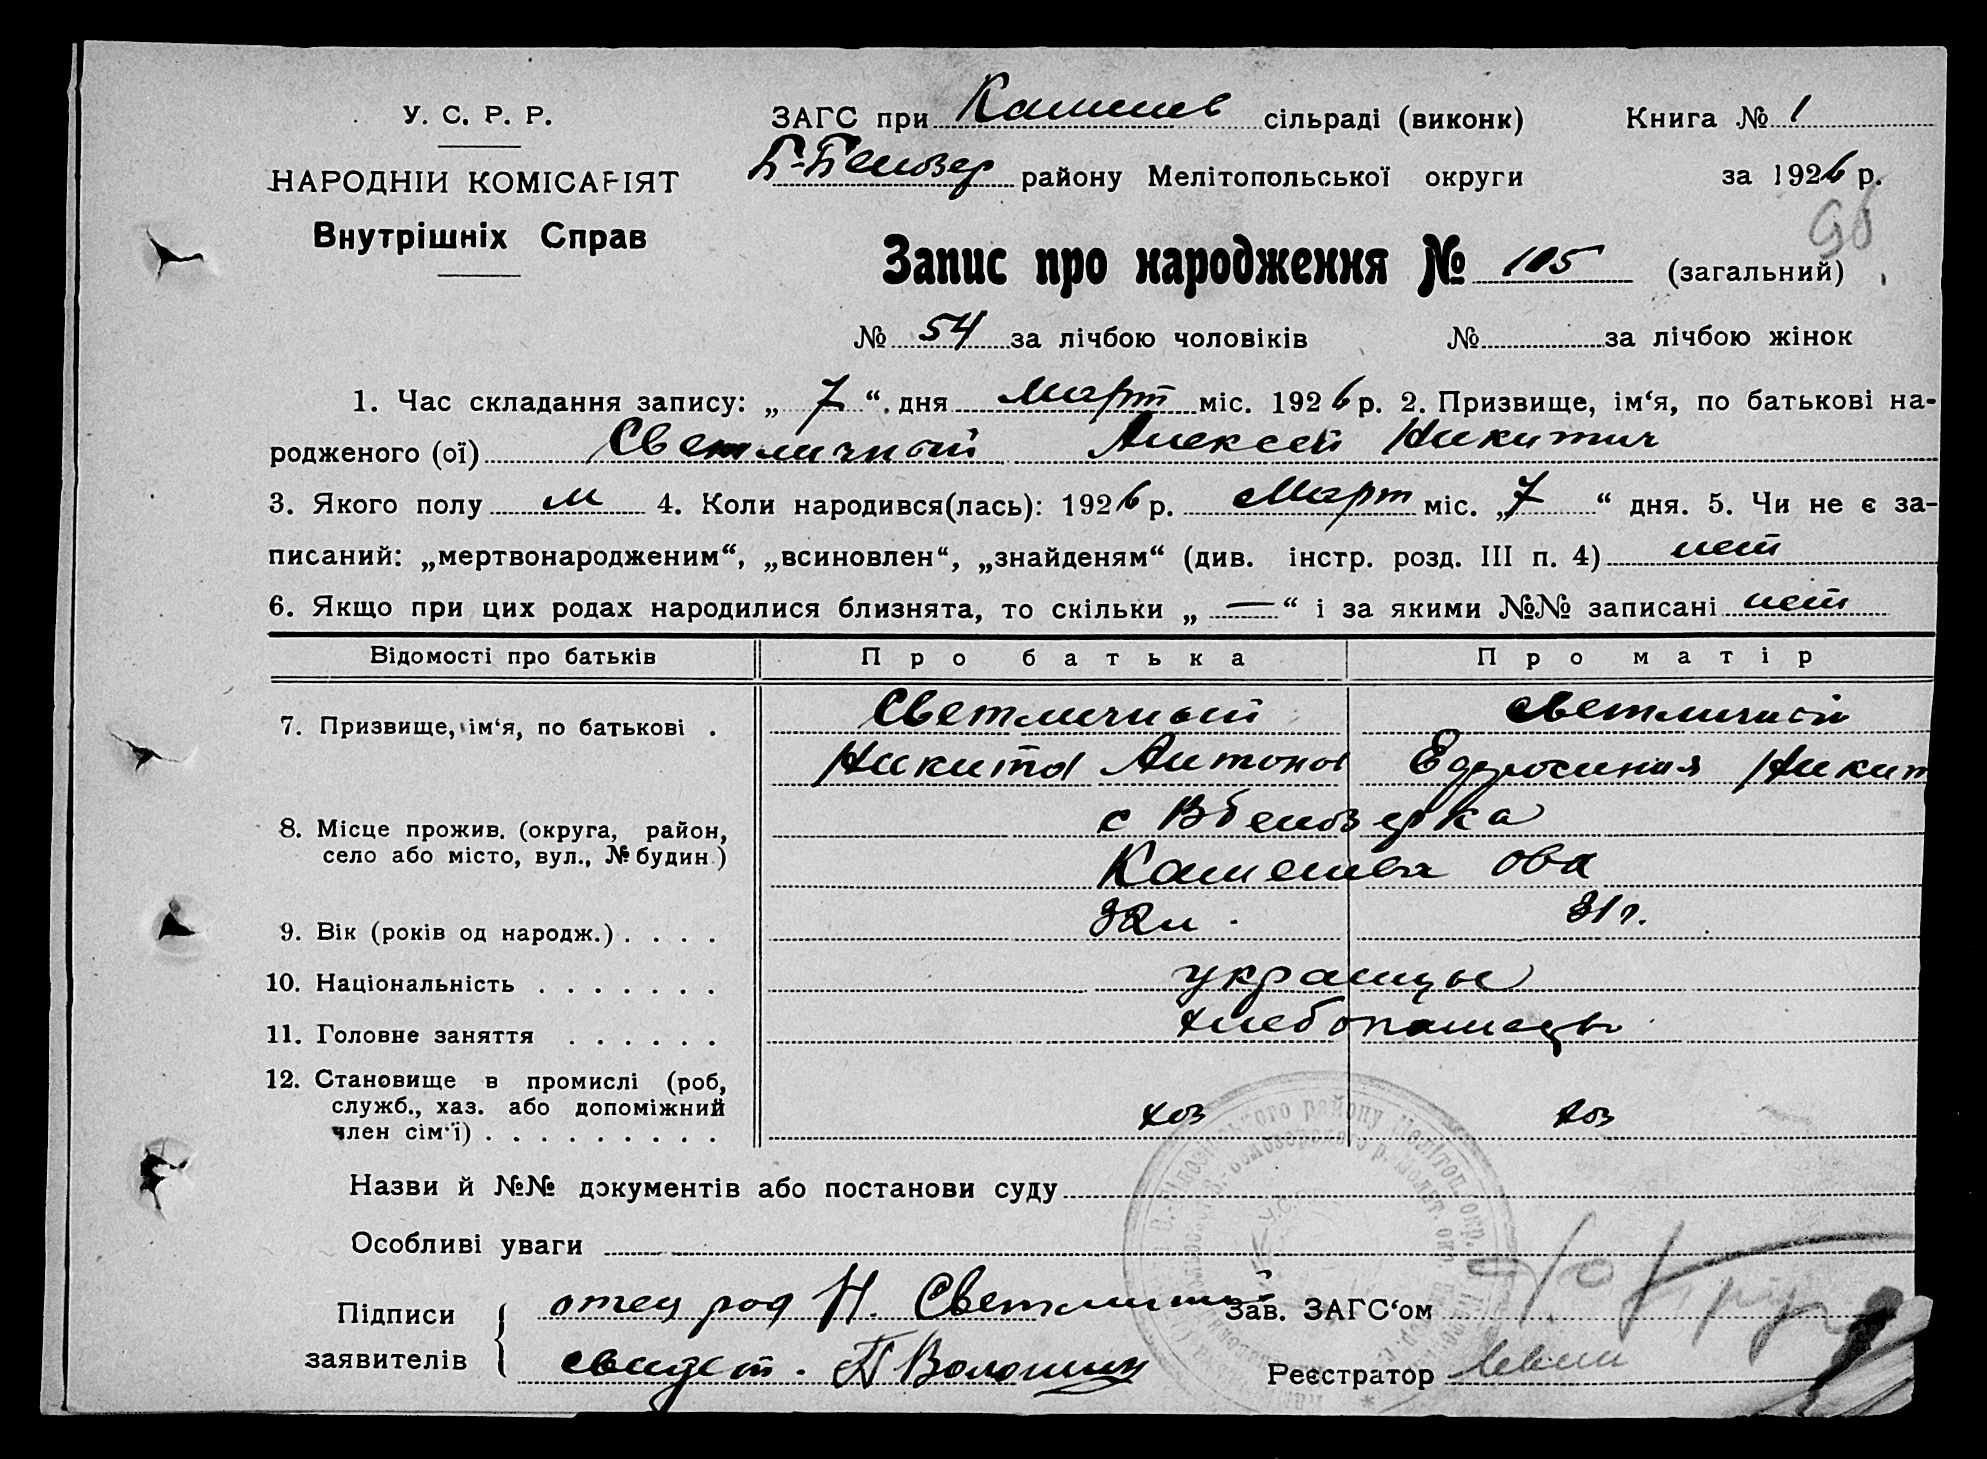 У. С. Р. Р.
НАРОДНІЙ КОМІСАРІЯТ
Внутрішніх Справ
ЗАГС при Камышев сільраді (виконк) Книга № 1
Б-Белозер району Мелітопольської округи за 1926 р.
96
Запис про народження № 105 (загальний)
№ 54 за лічбою чоловіків № за лічбою жінок
1. Час складання запису: „ 7 “ дня Март міс. 1926 р. 2. Призвище, ім‘я, по батькові на-
родженого (ої) Светличный Алексей Никитич
3. Якого полу м 4. Коли народився(лась): 1926 р. Март міс. „ 7 “ дня. 5. Чи не є за-
писаний: „мертвонародженим“, „всиновлен“, „знайденям“ (див. інстр. розд. III п. 4) нет
6. Якщо при цих родах народилися близнята, то скільки „ — “ і за якими №№ записані нет
Відомості про батьків Про батька Про матір
7. Призвище, ім‘я, по батькові . Светличный Светличный
Никита Антонов Ефросиния Никит
8. Місце прожив. (округа, район, с Ббелозерка
село або місто, вул., № будин.)
9. Вік (років од народж.) . . . . 32л. 31г.
10. Національність . . . . . . . украинцы
11. Головне заняття . . . . . . хлебопашець
12. Становище в промислі (роб,
служб., хаз. або допоміжний
член сім‘ї) . . . . . . . . . хоз хоз
Назви й №№ документів або постанови суду
Особливі уваги
Підписи отец род Н. Светличный Зав. ЗАГС‘ом
заявителів свидет. П Волошин Реєстратор